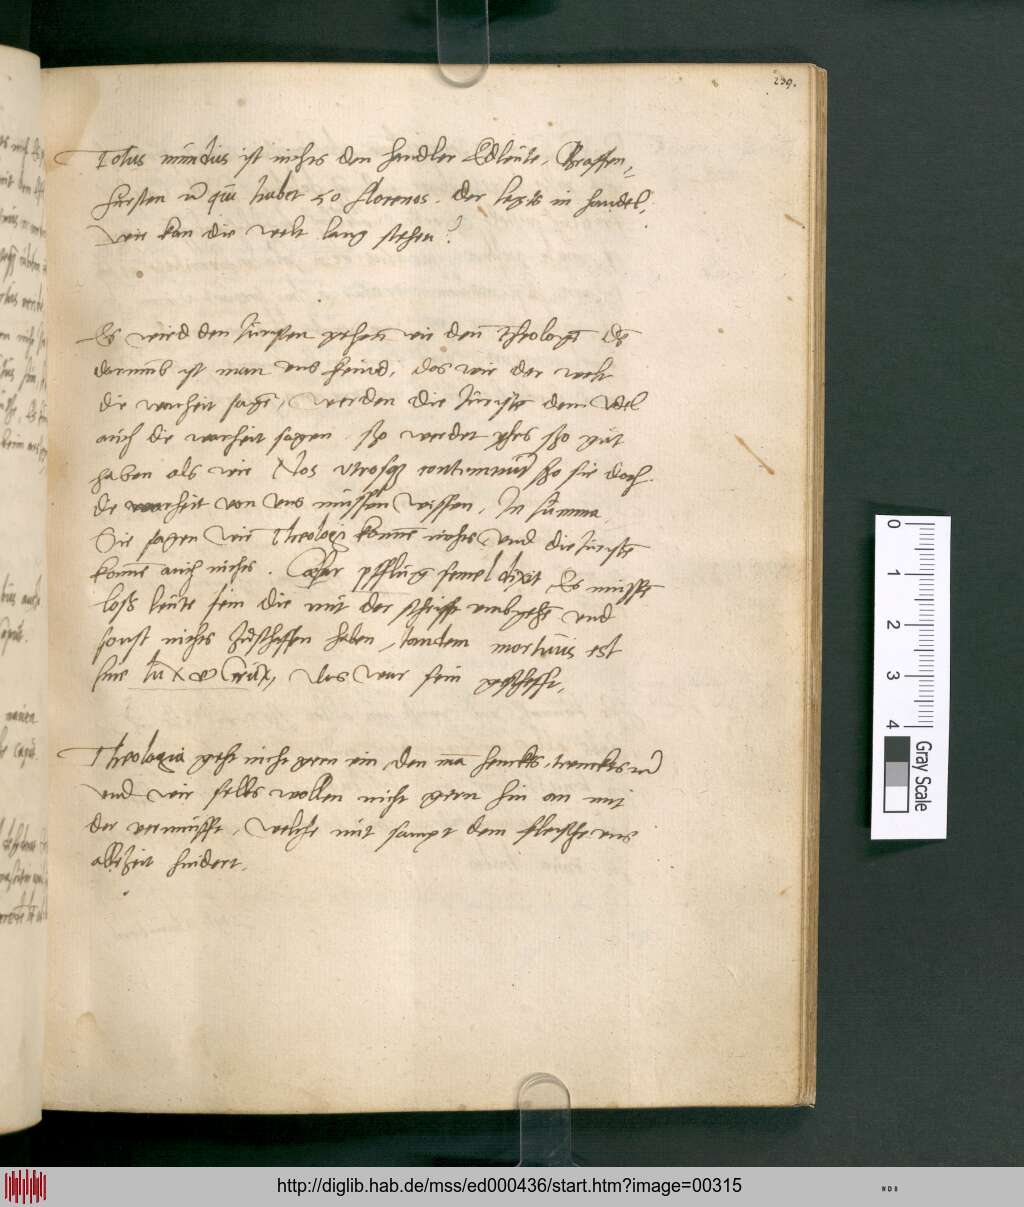 239.
Totus mundus ist nichts den hendler Edleute, Graffen,
fursten et qui habet 50 florenos. der legts in handel,
Wie kan die welt lang stehen?
Es wird den Juristen gehen wie den Theologen
darumb ist man uns feind, das wir der welt
die warheit sagen, Werden die Juristen dem Adel
auch die warheit sagen. szo werdet yhrs szo gut
haben als wir Nos utrosque contemnunt szo sie doch
die warheit von uns mussen wissen, In summa
Sie sagen Wir Theologi konnen nichts und die Juristen
konnen auch nichts. Caspar pfflug semel dixit Es mussen
losz leute sein die mit der schrifft umbgehen und
sonst nichts zuschaffen haben, tandem mortuus est
sine lux et crux, das war sein geschefft,
Theologia geht nicht gern ein, den man henckts, trenckts
und wir selbs wollen nicht gern hin an mit
der vernunfft, Welche mit sampt dem fleische uns
allzeit hindert.
0
1
2
3
4
Gray Scale
http://diglib.hab.de/mss/ed000436/start.htm?image=00315